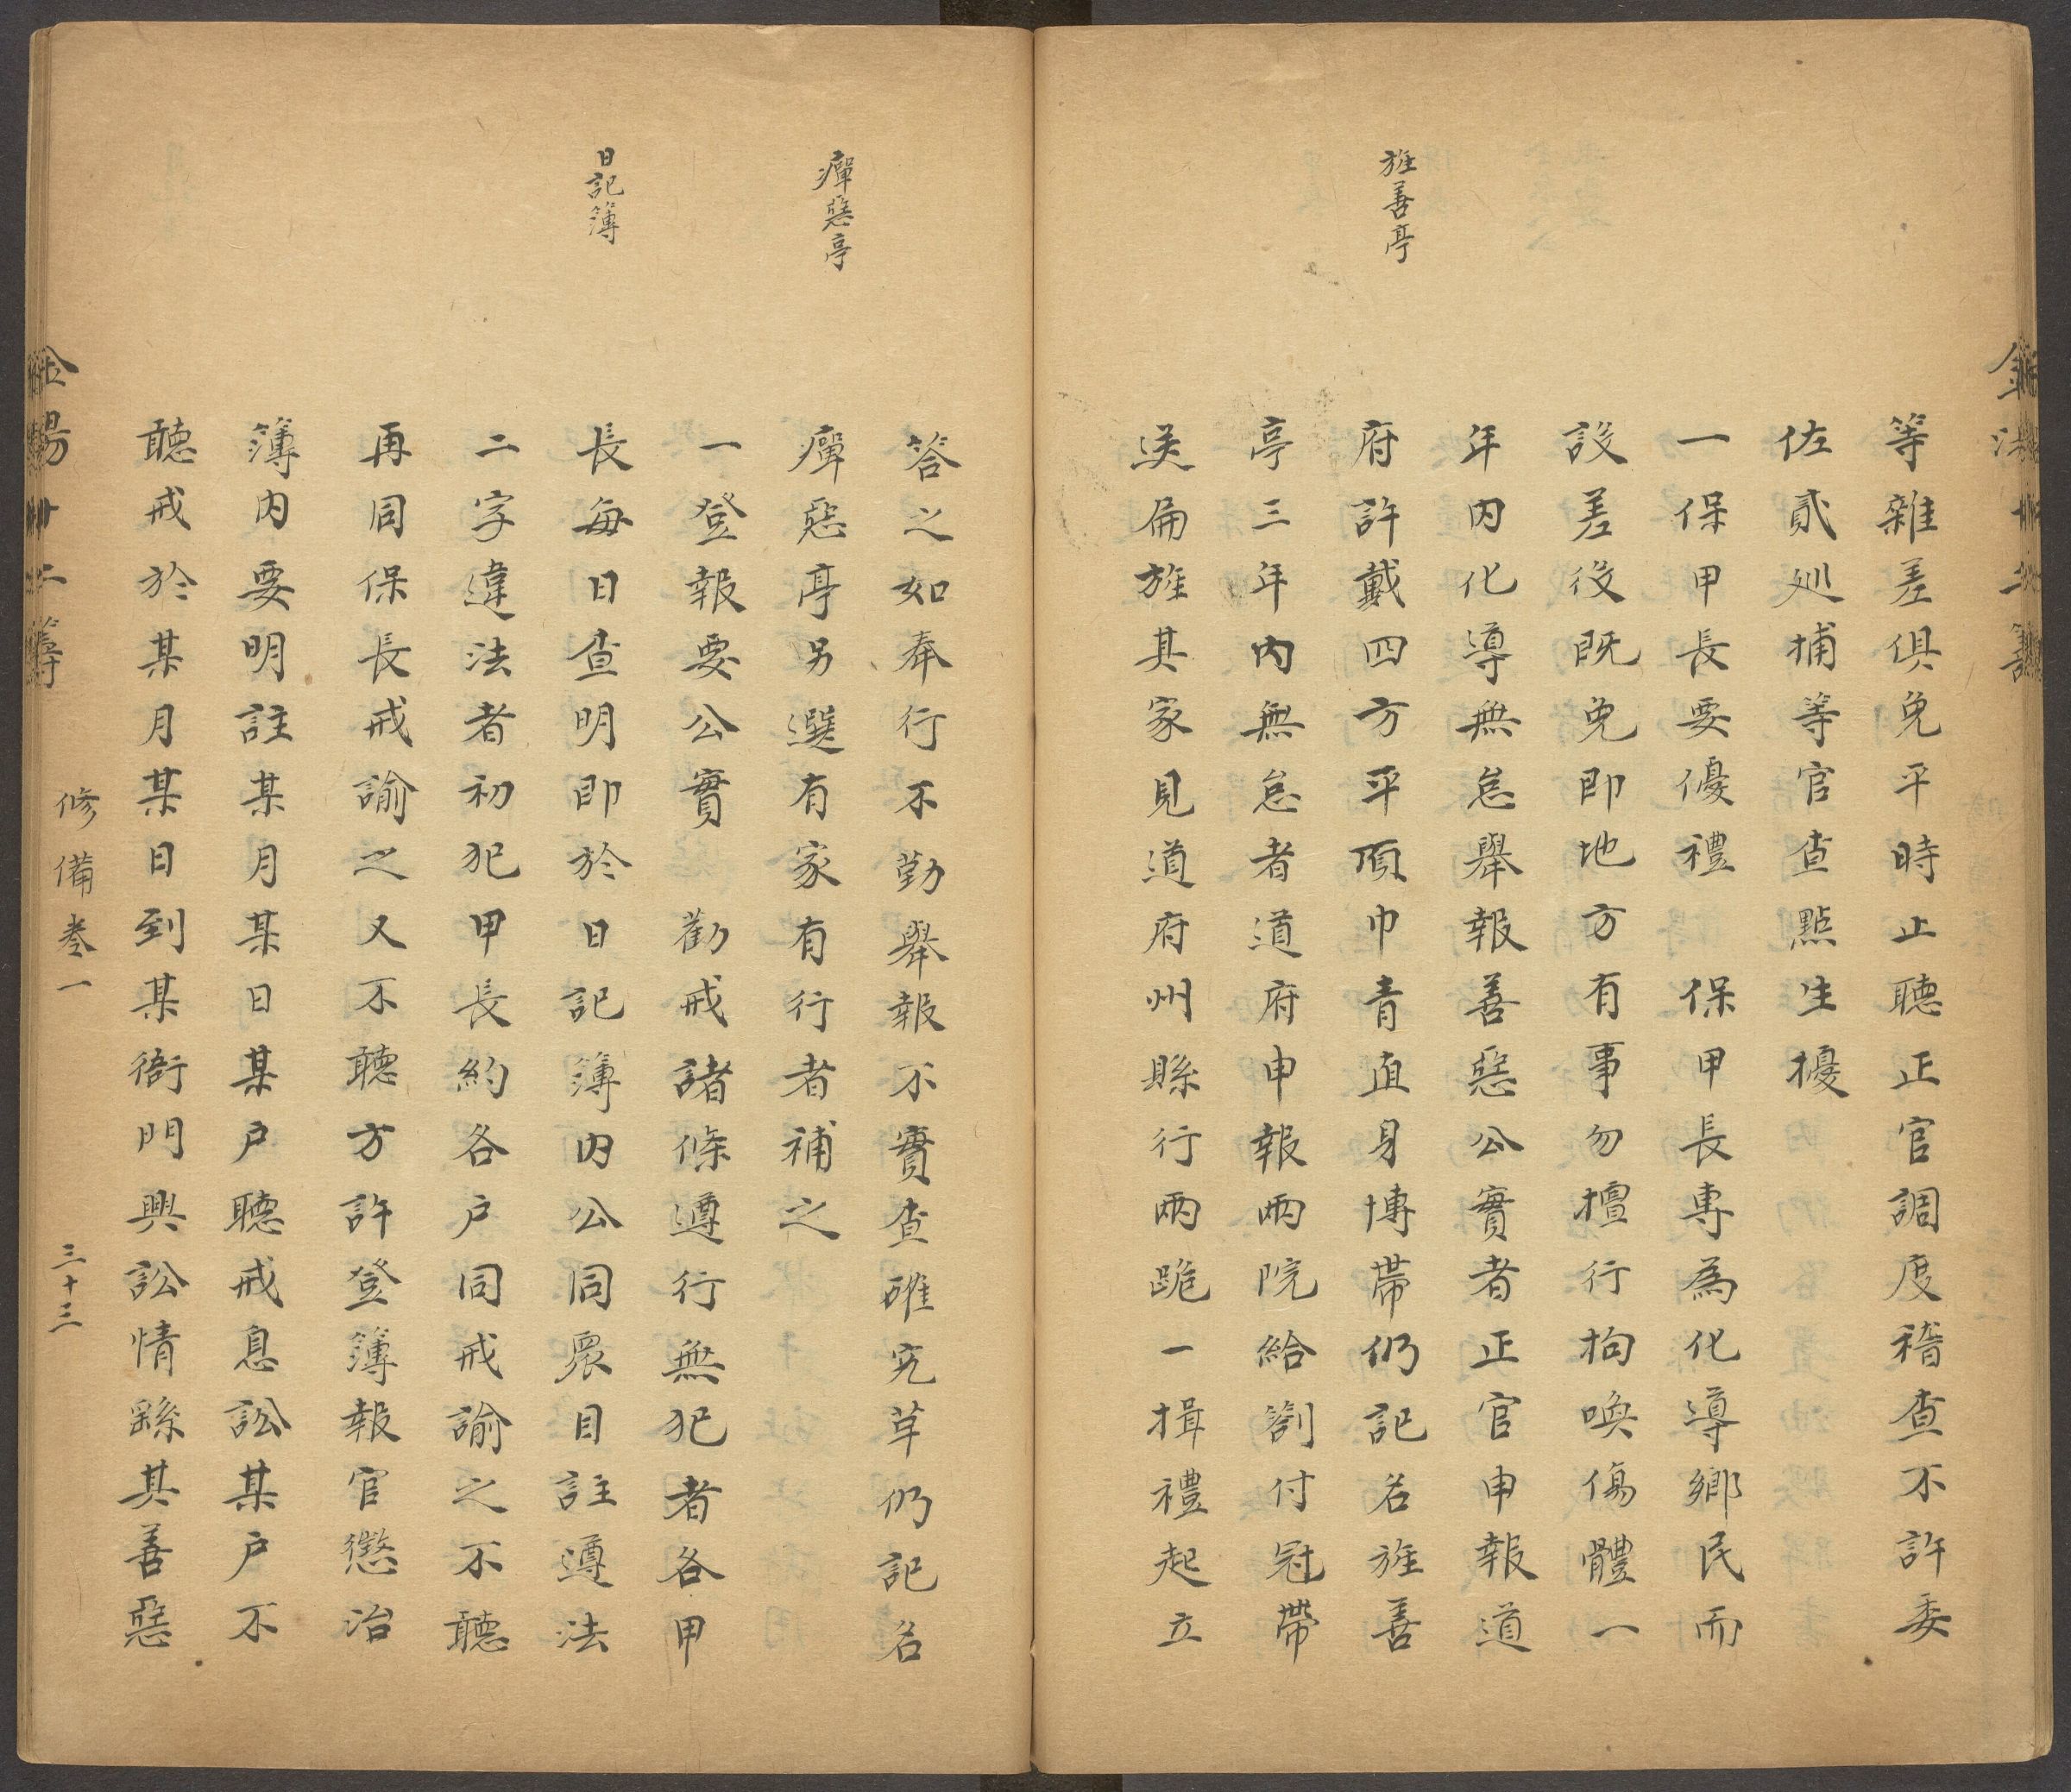 旌善亭
等雜差俱免平時止聽正官調度稽查不許委
佐貳廵捕等官查點生擾
一保甲長要優禮　保甲長專為化導鄉民而
設差役既免即地方有事勿擅行拘喚傷體一
年内化導無怠舉報善惡公實者正官申報道
府許戴四方平頂巾青直身博帶仍記名旌善
亭三年内無怠者道府申報兩院給劄付冠帶
送扁旌其家見道府州縣行兩跪一揖禮起立
癉惡亭
日記簿
答之如奉行不勤舉報不實查確究革仍記名
癉惡亭另選有家有行者補之
一登報要公實　勸戒諸條遵行無犯者各甲
長每日查明即於日記簿内公同眾目註遵法
二字違法者初犯甲長約各户同戒諭之不聽
再同保長戒諭之又不聽方許登簿報官懲治
簿内要明註某月某日某户聽戒息訟某户不
聽戒於某月某日到某衙門興訟情繇其善惡
金湯十二籌
修備卷一
三十三